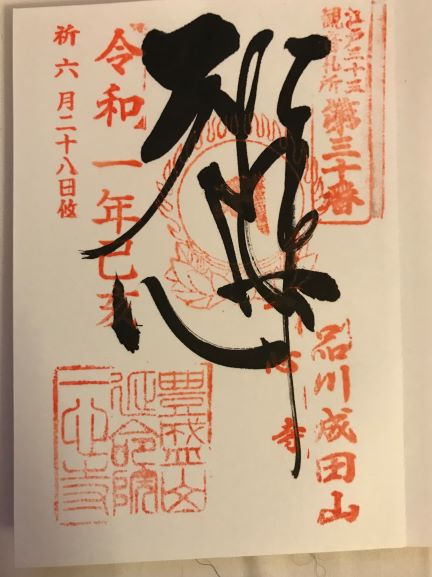 江戸三十三
観音札所
第三十番
品川成田山
心寺
令和一年己亥
祈六月二十八日攸
豊盛山
延命院
一心寺